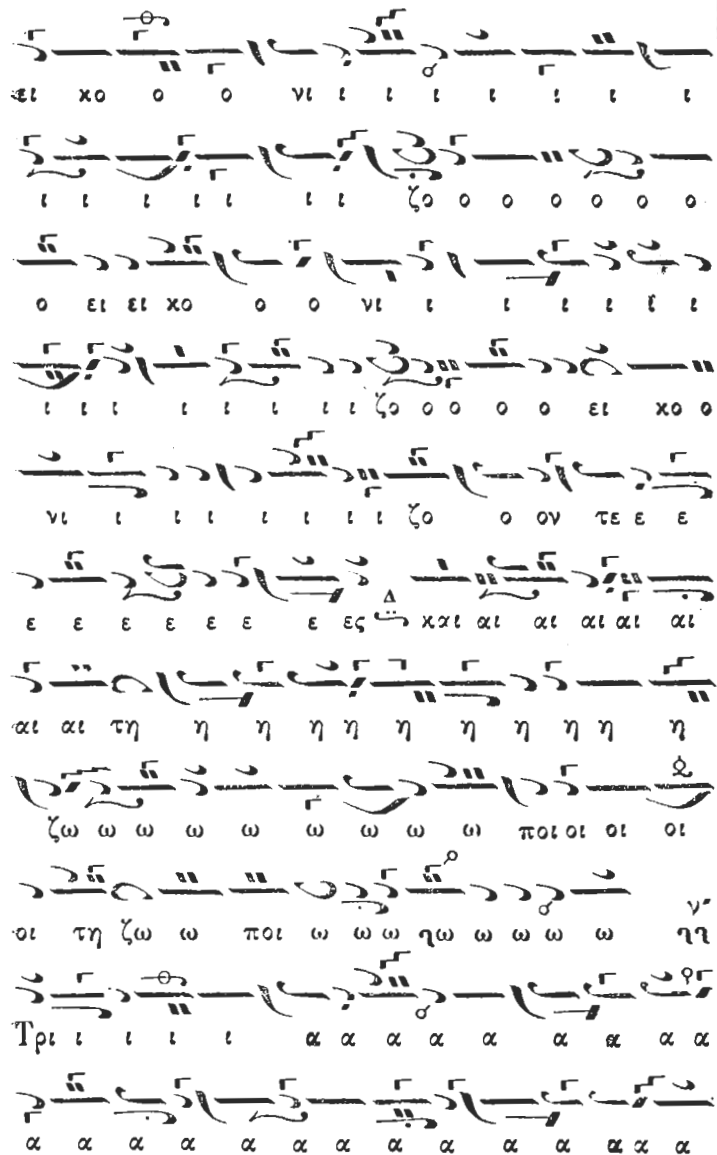 ει κο ο ο νι ι ι ι ι ι ι ι
ι ι ι ι ι ι ι ζο ο ο ο ο ο ο
ο ει ει κο ο ο νι ι ι ι ι ι ι
ι ι ι ι ι ι ι ι ζο ο ο ο ο ει κο ο
νι ι ι ι ι ι ι ι ζο ο ον τε ε ε
ε ε ε ε ε ε ε ες Δ και αι αι αι αι αι
αι αι τη η η η η η η η η η η
ζω ω ω ω ω ω ω ω ω ποι οι οι οι
οι τη ζω ω ποι ω ω ω ηω ω ω ω ω
Τρι ι ι ι ι α α α α α α α α α
α α α α α α α α α α α α α